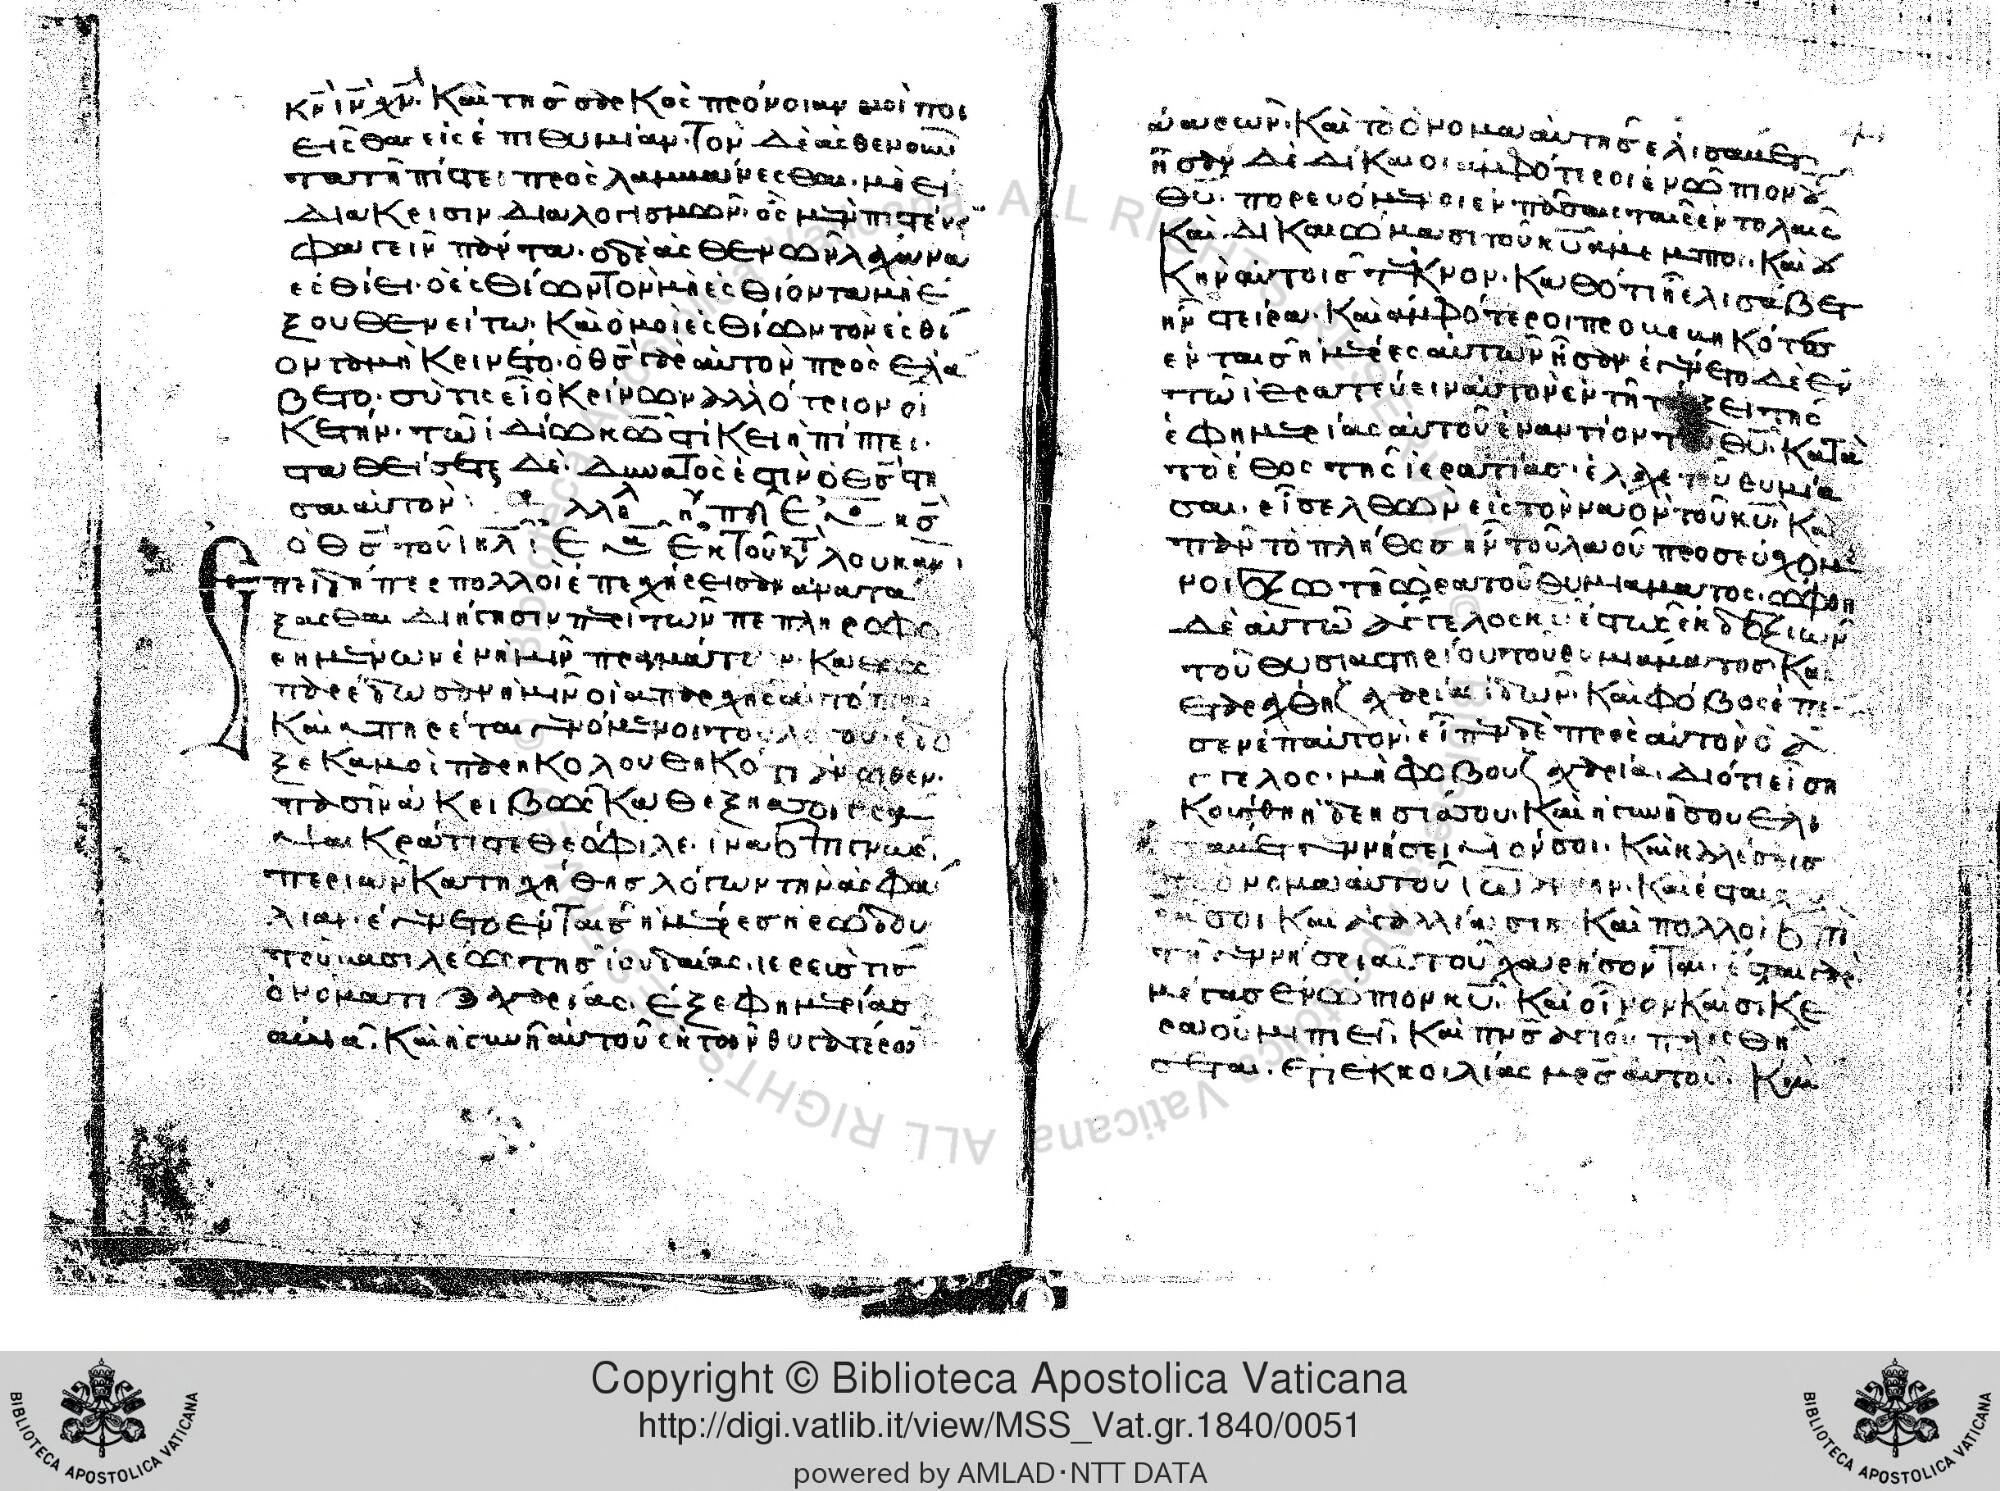 κν ιν χν. Καὶ τῆς σαρκὸς πρόνοιαν μὴ ποι
εῖσθαι εἰς ἐπιθυμίαν. Τὸν δὲ ἀσθενοῦν
τα τῆ πίστει προσλαμβάνεσθαι. μὴ εἰ
διακρισιν διαλογισμῶν. ὃς μὲν πιστεύει
φαγεῖν πάντα. ὁ δὲ ἀσθενῶν λάχανα
ἐσθίει. ὁ ἐσθίων τὸν μὴ ἐσθίοντα μὴ ἐ
ξουθενείτω. Καὶ ὁ μὴ ἐσθίων τὸν ἐσθί
οντα μὴ Κρινέτω. ὁ θς γὰρ αὐτὸν προσελά
βετο. σὺ τίς εἶ ὁ Κρίνων ἀλλότριον οἰ
Κέτην. τῶ ἰδίω κω στίΚει ἢ πίπτει.
σταθείσεται δὲ. δυνατὸς ἐστὶν ὁ θς στῆ
σαι αὐτόν
ὁ θς τοῦ ιηλ Ἐκ τοῦ κτ λουκαν
Ἐπειδήπερ πολλοὶ ἐπεχείρεισαν ἀνατα
ξασθαι διήγησιν περι τῶν πεπληροφο
ρημένων ἐν ἡμῖν πραγμάτων. Καθὼς
παρέδωσαν ἡμῖν οἱ ἀπαρχῆς αὐτόπται
Καὶ ὑπηρέται γενόμενοι τοῦ λόγου. ἔδο
ξε Καμοὶ παρηΚολουθηΚότι ἄνωθεν.
πᾶσιν ἀΚριβῶς Καθεξῆς σοι γρά
ψαι Κράτιστε Θεόφιλε. ἵνα ἐπιγνῶς.
περι ὧν Κατηχήθης λόγων τὴν ἀσφά
λιαν. ἐγένετο ἐν Ταῖς ἡμέρες ἡρώδου
τοῦ βασιλέως τῆς ἰουδαίας. ἱερεις τις
ὀνόματι Ζαχαρίας. ἐξ ἐφημερίας
ἀβιά. Καὶ ἡ γυνὴ αὐτοῦ ἐκ τῶν θυγατέρων
ἀαρων. Καὶ τὸ ὄνομα αὐτῆς ἐλισάβετ
ἦσαν δὲ δίΚαιοι ἀμφότεροι ἐνώπιον τοῦ
θυ. πορευόμενοι ἐν πάσαις ταῖς ἐντολαῖς
Καὶ διΚαιώμασι τοῦ κυ ἄμεμπτοι. Καὶ οὐ
Κ ἦν αὐτοῖς τέΚνον. Καθότι ἡ ἐλισάβετ
ἦν στείρα. Καὶ ἀμφότεροι προβεβηΚότες
ἐν ταῖς ἡμέρες αὐτῶν ἦσαν ἐγένετο δὲ ἐν
τῶ ἱερατεύειν αὐτὸν ἐν τῆ τάξει τῆς
ἐφημερίας αὐτοῦ ἐναντίον τοῦ θυ. Κατὰ
τὸ ἔθος τῆς ἱερατίας. ἔλαχε τοῦ θυμιά
σαι. εἰσελθὼν εἰς τὸν ναὸν τοῦ κυ. Καὶ
πᾶν τὸ πλῆθος ἦν τοῦ λαοῦ προσευχόμε
νοι ἔξω τῆ ὥρα τοῦ θυμιάματος. ὤφθη
δὲ αὐτῶ ἄγγελος κυ ἑστὼς ἐκ δεξιῶν
τοῦ θυσιαστηρίου τοῦ θυμιάματος. Καὶ
ἐταράχθη ζαχαρίας ἰδών. Καὶ φόβος ἐπέπε
σεν ἐπ αὐτόν. εἶπεν δὲ πρὸς αὐτὸν ὁ ἄγ
γελος. μὴ φοβοῦ ζαχαρία. διότι εἰση
Κούσθη ἡ δέησίς σου. Καὶ ἡ γυνή σου ἐλι
σάβετ γεννήσει υἱόν σοι. Καὶ Καλέσεις
τὸ ὄνομα αὐτοῦ ἰωάννην. Καὶ ἔσται χα
ρά σοι Καὶ ἀγαλλίασις. Καὶ πολλοὶ ἐπὶ
τῆ γεννήσει αὐτοῦ χαρήσονται. ἔσται γὰρ
μέγας ἐνώπιον κυ. Καὶ οἶνον Καὶ σίΚε
ρα οὐ μὴ πίει. Καὶ πνς ἁγίου πλησθή
σεται. ἔτι ἐκ κοιλίας μρς αὐτοῦ. Καὶ